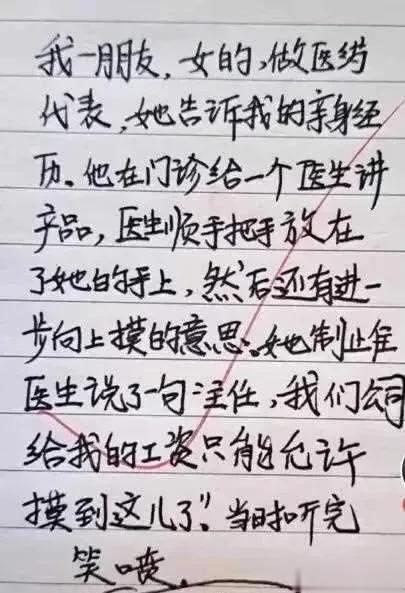 我一朋友，女的，做医药
代表，她告诉我的亲身经
历。他在门诊给一个医生讲
产品，医生顺手把手放在
了她的手上，然后还有进一
步向上摸的意思。她制止住
医生说了一句:主任，我们公司
给我的工资只能允许
摸到这儿了”当时听完
笑喷.